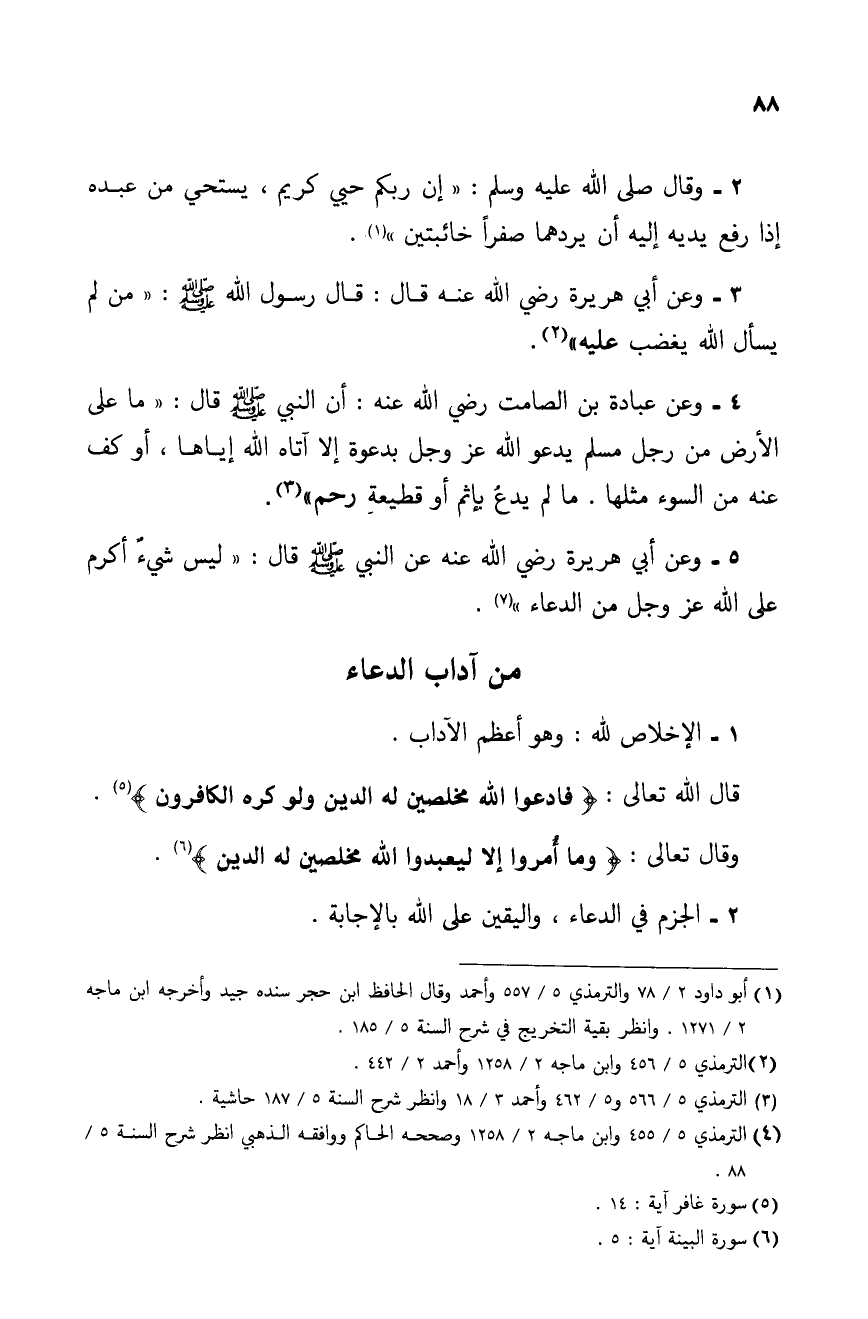 ٨٨
٢ ـ وقال صلى الله عليه وسلم : « إن ربكم حيي كريم ، يستحي من عبـده
إذا رفع يديه إليه أن يردهما صفراً خائبتين »(١) .
٣ ـ وعن أبي هريرة رضي الله عنـه قـال : قـال رسـول الله ﷺ : « من لم
يسأل الله يغضب عليه»(٢) .
٤ ـ وعن عبادة بن الصامت رضي الله عنه : أن النبي ﷺ قال : « ما على
الأرض من رجل مسلم يدعو الله عز وجل بدعوة إلا آتاه الله إيـاهـا ، أو كف
عنه من السوء مثلها . ما لم يدعُ بإثم أو قطيعةِ رحم»(٣) .
٥ ـ وعن أبي هريرة رضي الله عنه عن النبي ﷺ قال : « ليس شيءٌ أكرم
على الله عز وجل من الدعاء »(٧) .
من آداب الدعاء
١ ـ الإخلاص لله : وهو أعظم الآداب .
قال الله تعالى : ﴿ فادعوا الله مخلصين له الدين ولو كره الكافرون ﴾(٥) .
وقال تعالى : ﴿ وما أُمروا إلا ليعبدوا الله مخلصين له الدين ﴾(٦) .
٢ ـ الجزم في الدعاء ، واليقين على الله بالإجابة .
(١) أبو داود ٢ / ٧٨ والترمذي ٥ / ٥٥٧ وأحمد وقال الحافظ ابن حجر سنده جيد وأخرجه ابن ماجه
٢ / ١٢٧١ . وانظر بقية التخريج في شرح السنة ٥ / ١٨٥ .
(٢)الترمذي ٥ / ٤٥٦ وابن ماجه ٢ / ١٢٥٨ وأحمد ٢ / ٤٤٢ .
(٣) الترمذي ٥ / ٥٦٦ و٥ / ٤٦٢ وأحمد ٣ / ١٨ وانظر شرح السنة ٥ / ١٨٧ حاشية .
(٤) الترمذي ٥ / ٤٥٥ وابن ماجـه ٢ / ١٢٥٨ وصححـه الحـاكم ووافقـه الـذهبي انظر شرح السنـة ٥ /
٨٨ .
(٥) سورة غافر آية : ١٤ .
(٦) سورة البينة آية : ٥ .